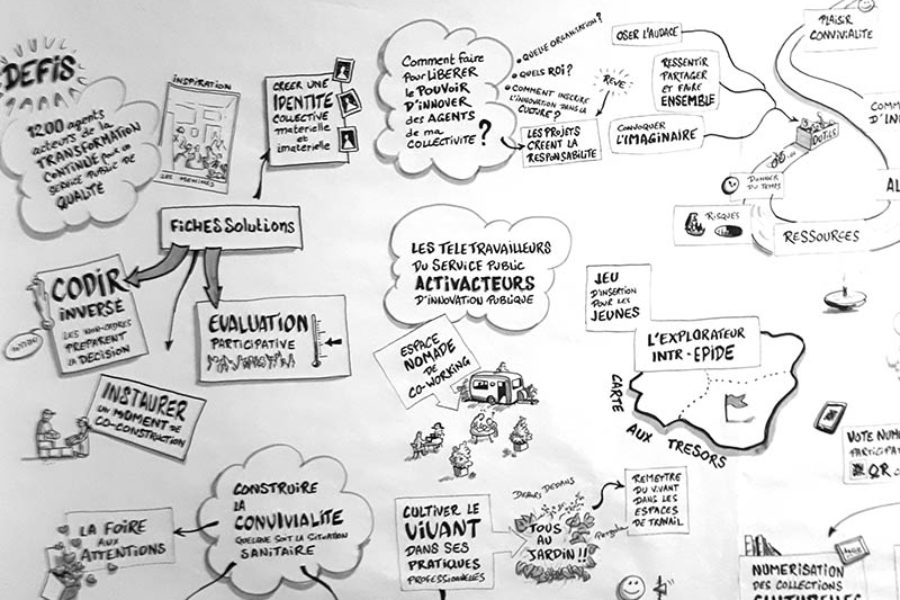 DEFIS
1200 agents
acteurs de la
TRANSFORMATION
CONTINUE pour un
SERVICE PUBLIC DE
QUALITÉ
INSPIRATION
LES MENINES
CREER UNE
IDENTITÉ
COLLECTIVE
matérielle
et
immatérielle
FICHES SOLUTIONS
CODIR
INVERSÉ
LES NON-CADRES
PREPARENT
LA DECISION
EVALUATION
PARTICIPATIVE
INSTAURER
UN MOMENT DE
CO-CONSTRUCTION
Comment faire
Pour LIBERER
le POUVOIR
D'INNOVER
des AGENTS
de ma
COLLECTIVITÉ ?
• QUELLE ORGANISATION ?
• QUELS ROI ?
• COMMENT INSCRIRE
L'INNOVATION DANS LA
CULTURE ?
REVE
LES PROJETS
CRÉENT LA
RESPONSABILITÉ
OSER L'AUDACE
RESSENTIR
PARTAGER
ET FAIRE
ENSEMBLE
CONVOQUER
L'IMAGINAIRE
OUTILS
PLAISIR
CONVIVIALITÉ
COMM
D'IN
DONNER
DU TEMPS
AL
RISQUES
RESSOURCES
LES TELETRAVAILLEURS
DU SERVICE PUBLIC
ACTIVACTEURS
D'INNOVATION PUBLIQUE
ESPACE
NOMADE
DE
CO-WORKING
JEU
D'INSERTION
POUR LES
JEUNES
L'EXPLORATEUR
INTR-EPIDE
CARTE
AUX TRESORS
VOTE NUM
PARTICIPA
QR
CONSTRUIRE
LA
CONVIVIALITÉ
QUELQUE SOIT LA SITUATION
SANITAIRE
LA FOIRE
AUX
ATTENTIONS
CULTIVER LE
VIVANT
DANS SES
PRATIQUES
PROFESSIONNELLES
DEHORS DEDANS
TOUS
AU
JARDIN !!
Pergola
REMETTRE
DU VIVANT
DANS LES
ESPACES
DE TRAVAIL
NUMERISATION
DES COLLECTIONS
CULTURELLES